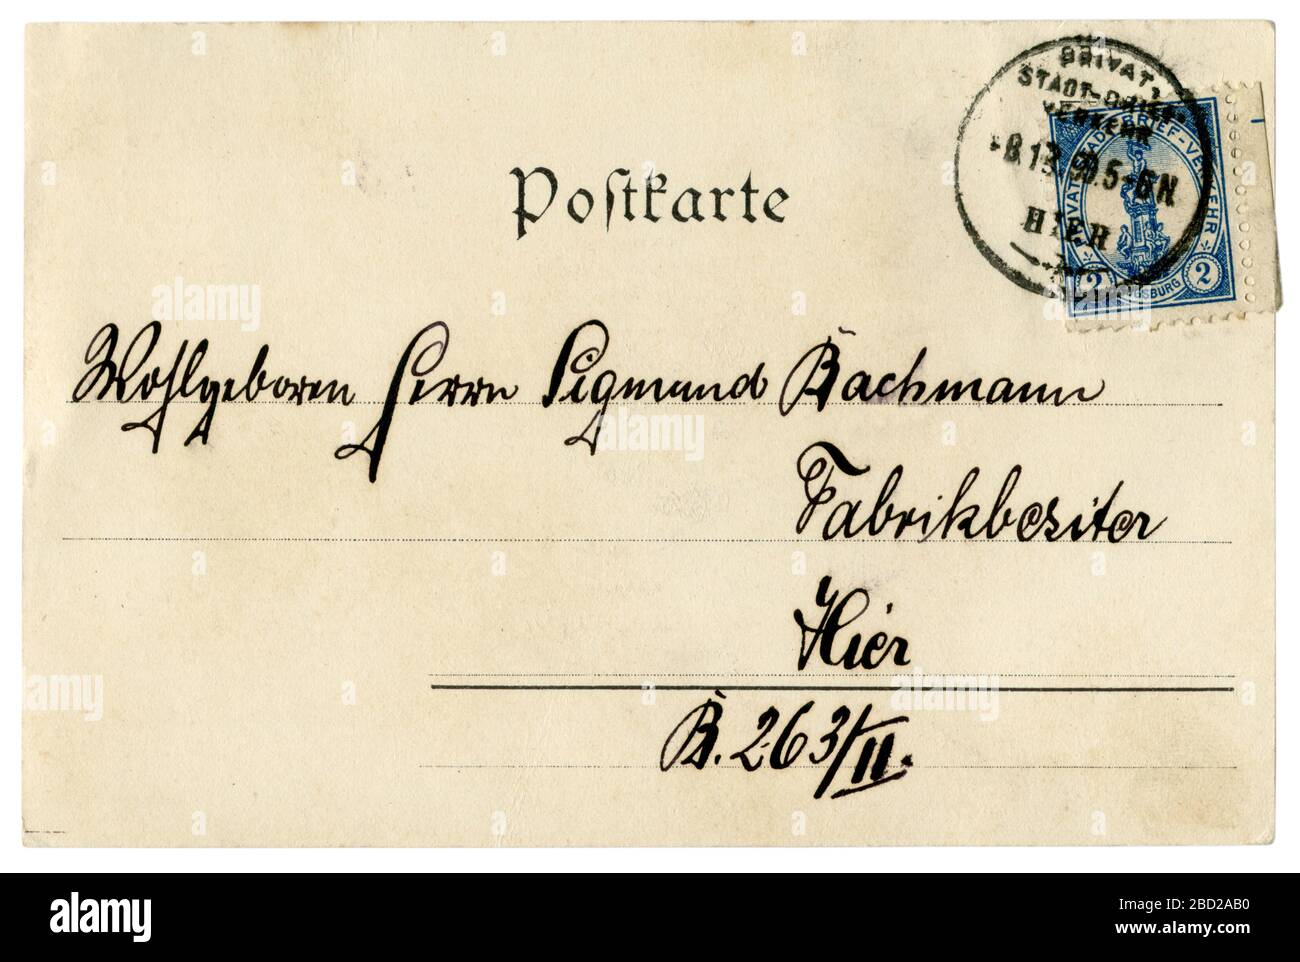 PRIVAT-
STADT-BRIEF-
VERKEHR
8.13.99.5-6N
HIER
PRIVAT-STADT-BRIEF-VERKEHR
2 AUGSBURG 2
Poſtkarte
Wohlgeboren Herrn Sigmund Bachmann
Fabrikbesiter
Hier
B. 263/II.
alamy
Image ID: 2BD2AB0
www.alamy.com